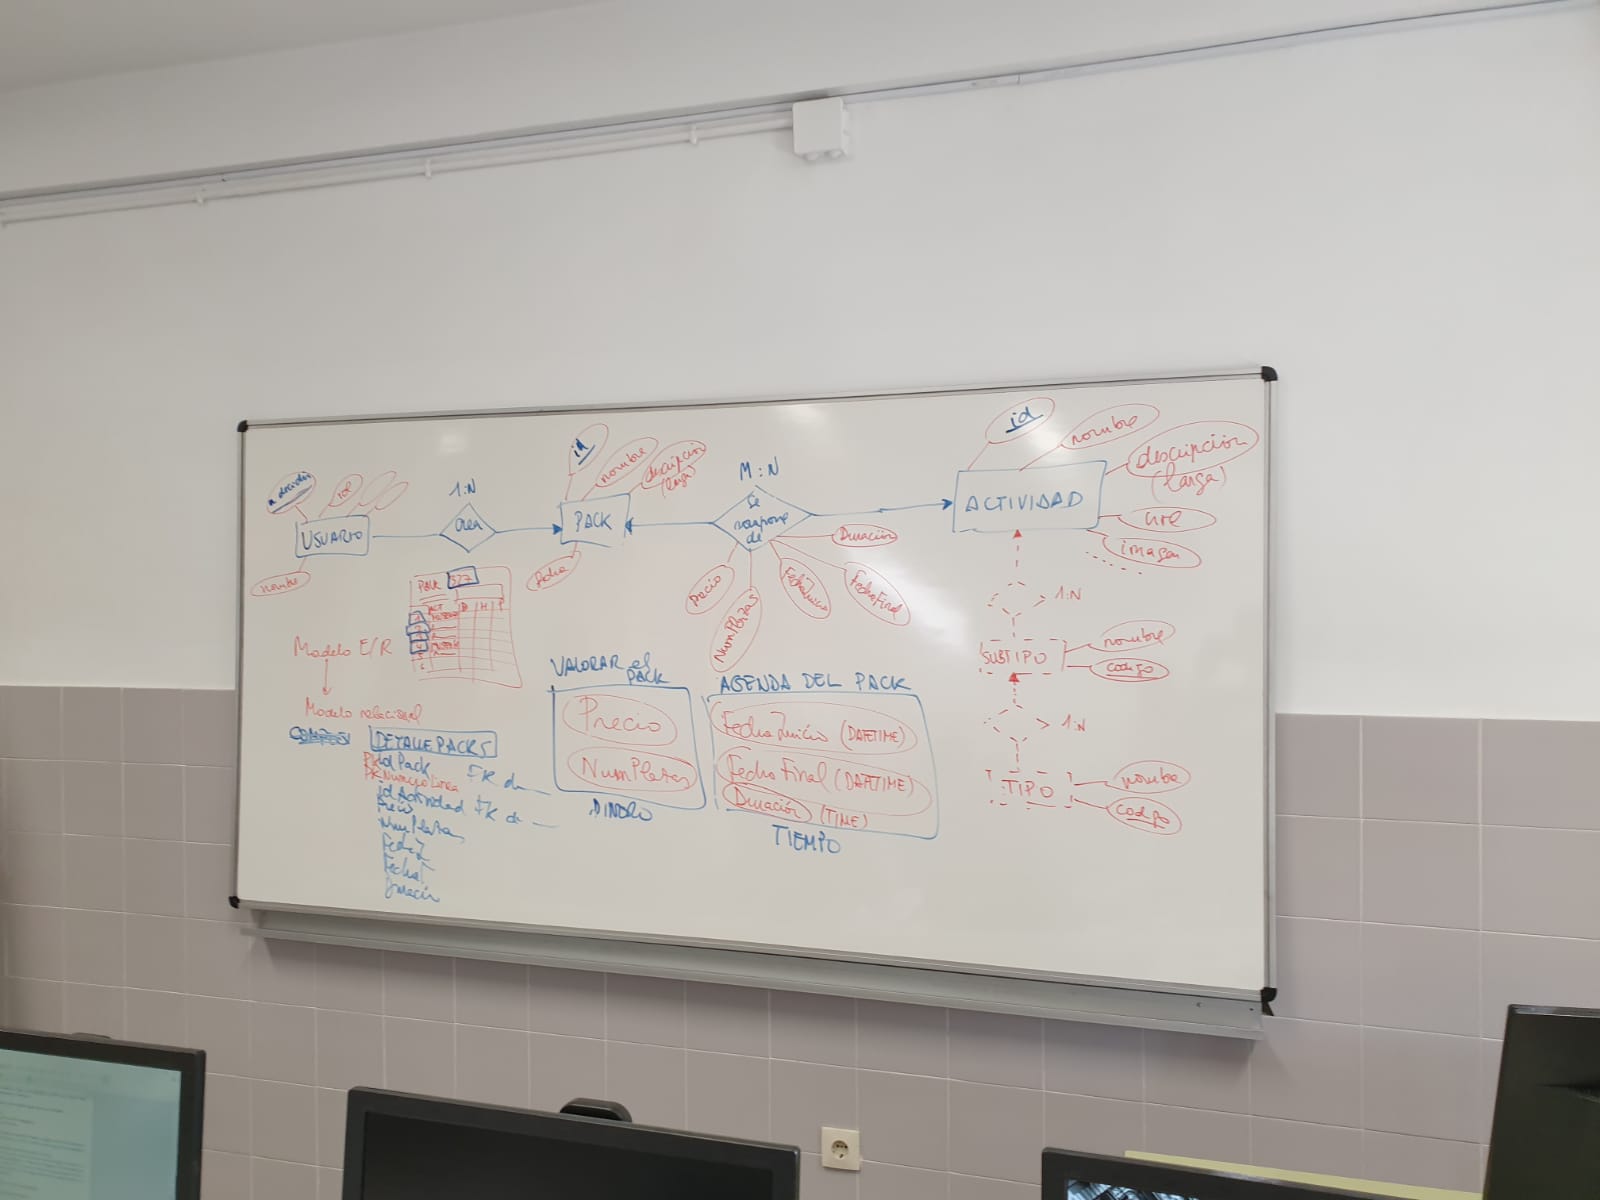 id
nombre
USUARIO
1:N
crea
id
nombre
descripción
(larga)
PACK
fecha
M:N
Se
compone
de
Precio
NumPlazas
FechaInicio
FechaFinal
Duración
id
nombre
descripción
(larga)
ACTIVIDAD
url
imagen
1:N
SUBTIPO
nombre
codigo
1:N
TIPO
nombre
codigo
PACK 327
ACT
1
2
3
4
5
6
Modelo E/R
Modelo relacional
DETALLE PACKS
PK idPack FK de
PK Numero Linea
idActividad FK de
Precio
NumPlazas
FechaI
FechaF
Duración
VALORAR el
PACK
Precio
NumPlazas
DINERO
AGENDA DEL PACK
FechaInicio (DATETIME)
FechaFinal (DATETIME)
Duración (TIME)
TIEMPO